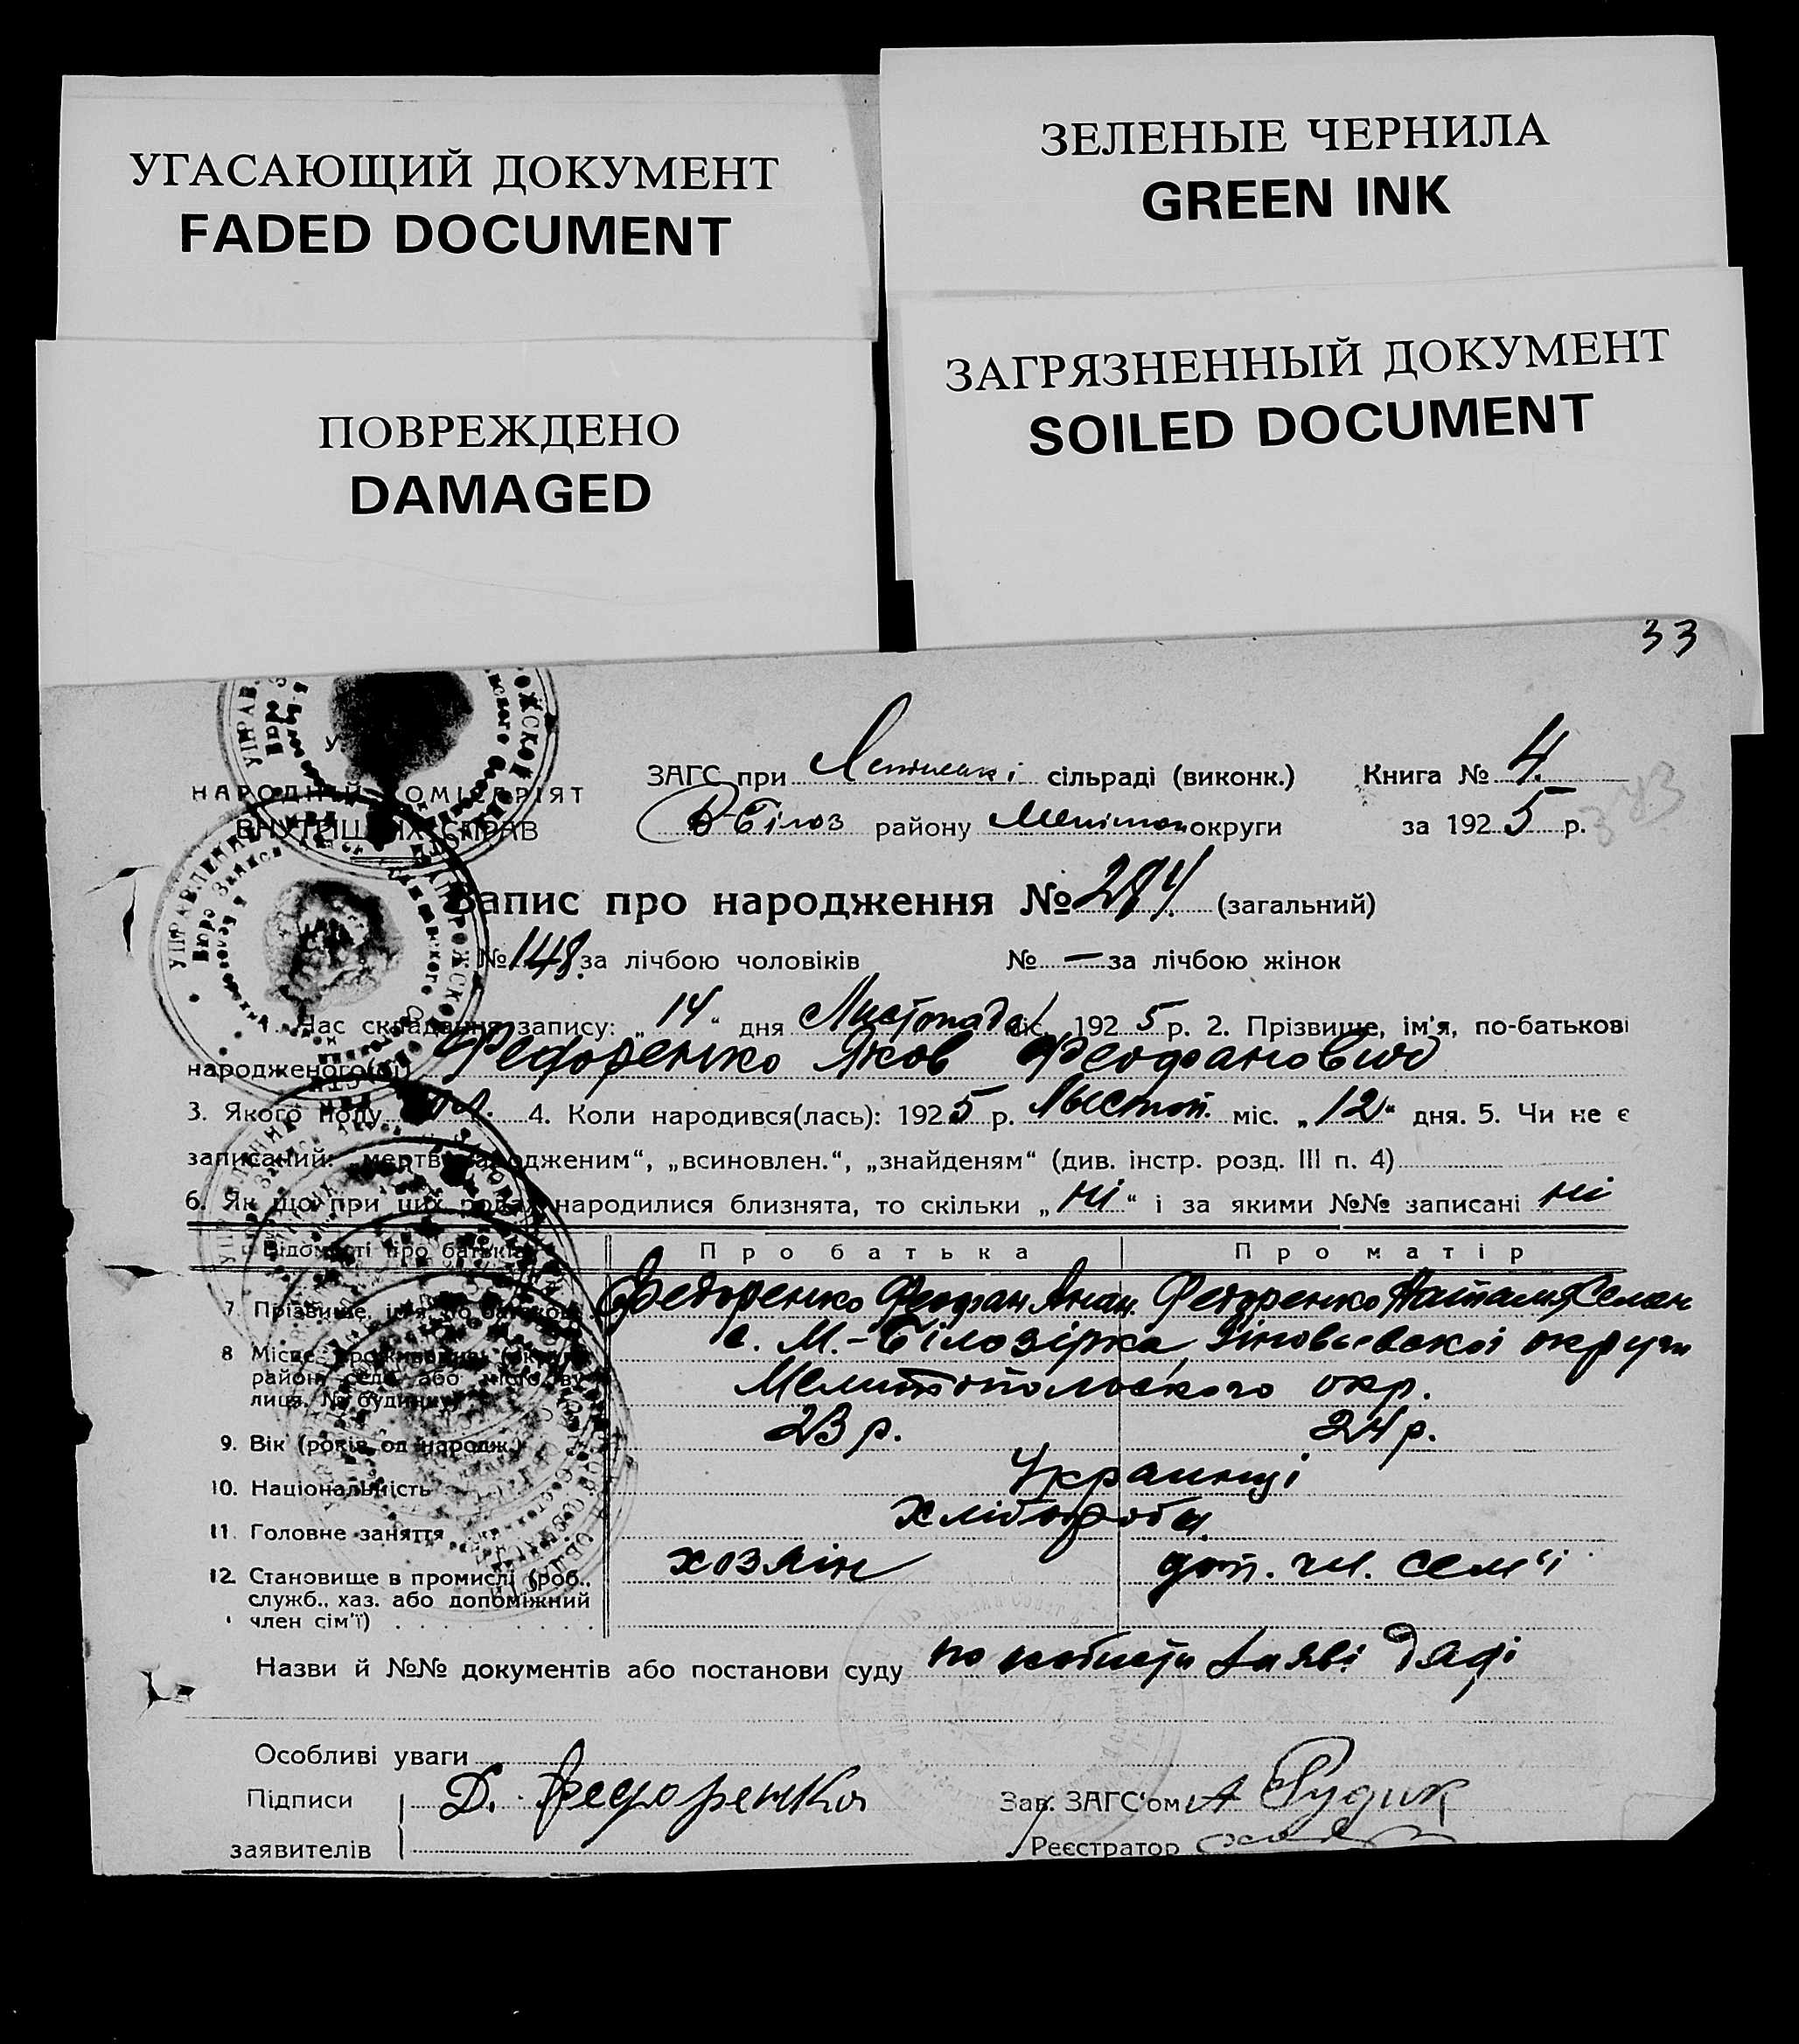 УГАСАЮЩИЙ ДОКУМЕНТ
FADED DOCUMENT
ЗЕЛЕНЫЕ ЧЕРНИЛА
GREEN INK
ПОВРЕЖДЕНО
DAMAGED
ЗАГРЯЗНЕННЫЙ ДОКУМЕНТ
SOILED DOCUMENT
33
НАРОДНІЙ КОМІСАРІЯТ
ВНУТРІШНІХ СПРАВ
ЗАГС при сільраді (виконк.) Книга № 4.
В Білоз району Меліто округи за 1925 р.
343
Запис про народження № (загальний)
№ 148. за лічбою чоловіків № — за лічбою жінок
1. Час складання запису: „14“ дня Листопада міс. 1925 р. 2. Прізвище, ім'я, по-батькові
народженого(ої) Федоренко Яков Феофанович
3. Якого полу 4. Коли народився(лась): 1925 р. Листоп. міс. „12“ дня. 5. Чи не є
записаний: „мертвонародженим“, „всиновлен.“, „знайденям“ (див. інстр. розд. III п. 4)
6. Як що при цих родах народилися близнята, то скільки „ні“ і за якими №№ записані ні
Відомості про батьків Про батька Про матір
7. Прізвище, ім'я, по батькові Федоренко Феофан Анан. Федоренко Наталия Семен
8 Місце проживання (округа, с. М.-Білозірка, округи
район, село або місто, ву- Мелитопольского окр.
лиця, № будинку)
9. Вік (років од народж.) 23 р. 24 р.
10. Національність Украинці
11. Головне заняття Хлібороби.
12. Становище в промислі (роб., хозяін доп. чл. сем'і
служб., хаз. або допоміжний
член сім'ї)
Назви й №№ документів або постанови суду по заяві дяді
Особливі уваги
Підписи Д. Федоренко Зав. ЗАГС'ом А Рудик
заявителів Реєстратор